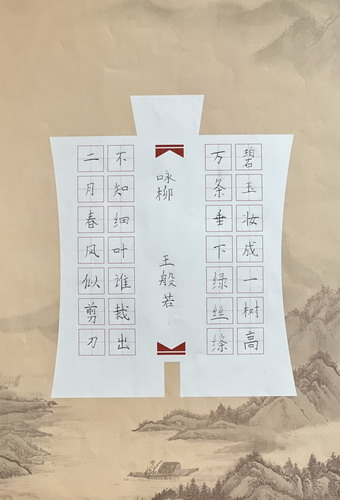 碧玉妆成一树高
万条垂下绿丝绦
咏柳
王般若
不知细叶谁裁出
二月春风似剪刀